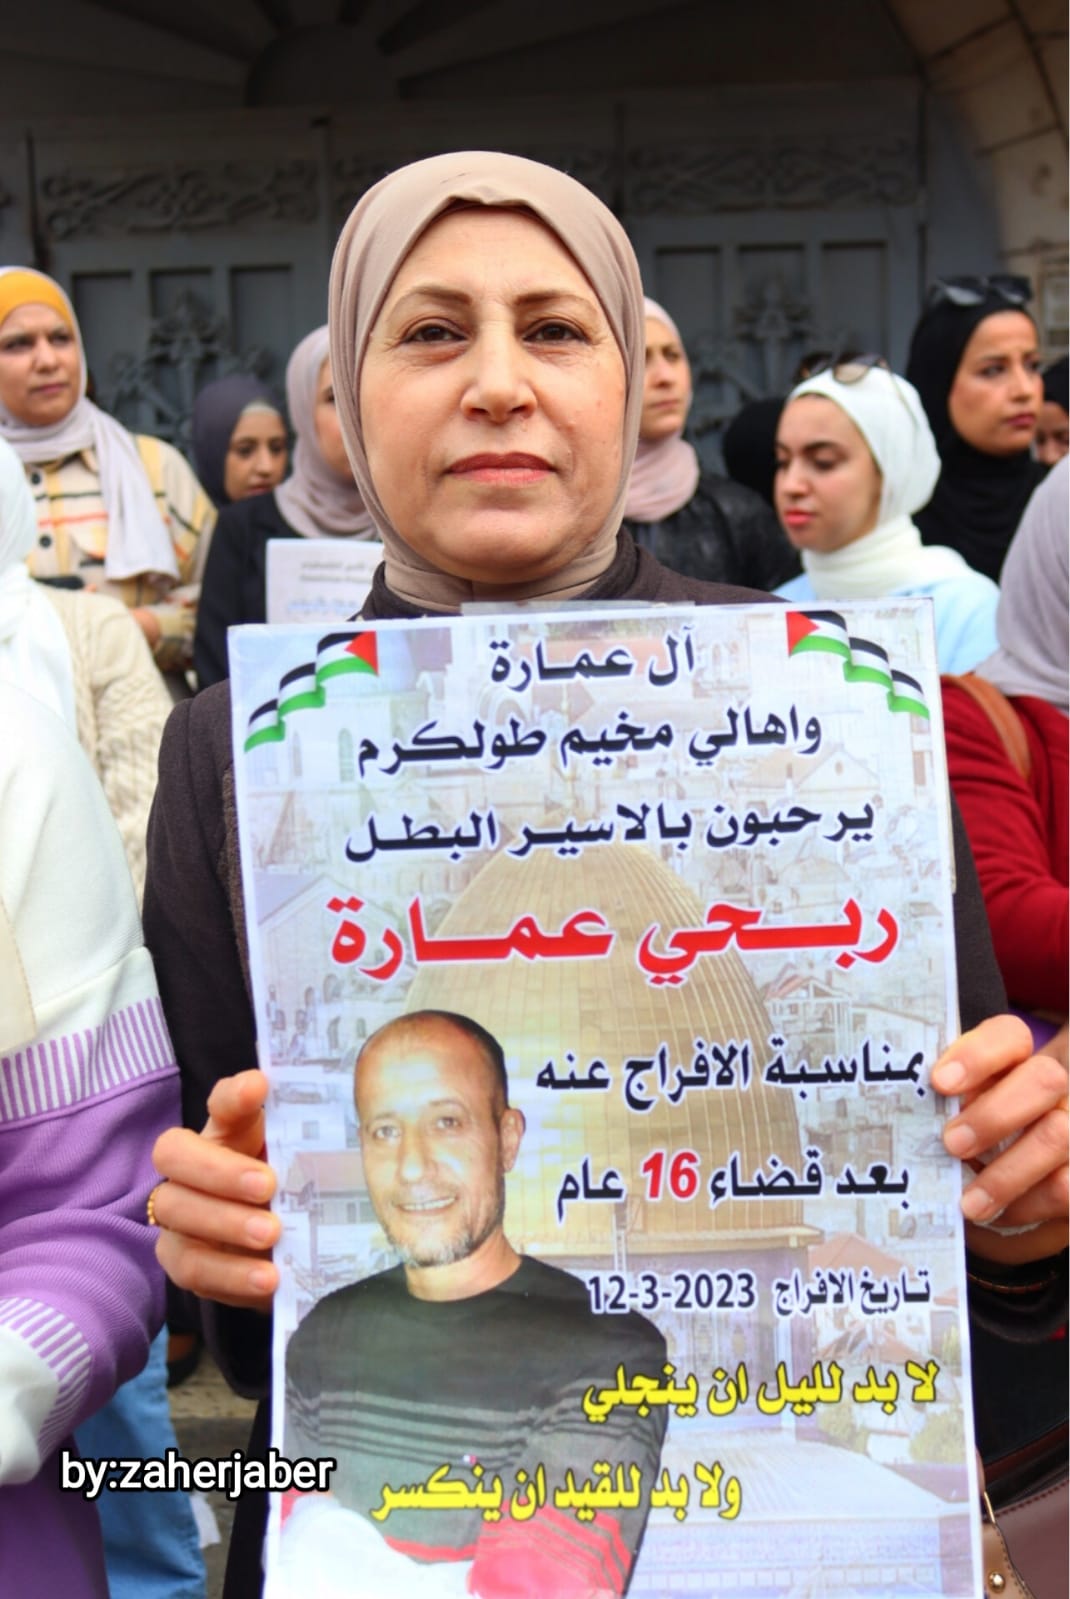 آل عمارة
واهالي مخيم طولكرم
يرحبون بالاسير البطل
ربحي عمارة
بمناسبة الافراج عنه
بعد قضاء 16 عام
تاريخ الافراج 12-3-2023
لا بد لليل ان ينجلي
ولا بد للقيد ان ينكسر
by:zaherjaber